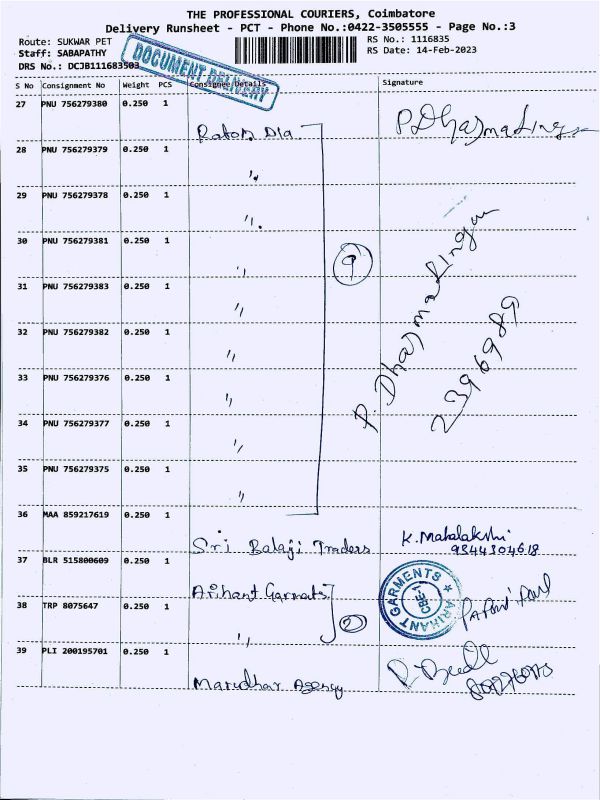 THE PROFESSIONAL COURIERS, Coimbatore
Delivery Runsheet - PCT - Phone No.:0422-3505555 - Page No.:3
Route: SUKWAR PET
RS No.: 1116835
Staff: SABAPATHY
RS Date: 14-Feb-2023
DRS No.: DCJB111683503
DOCUMENT DELIVERY
S No Consignment No Weight PCS Consignee Details Signature
27 PNU 756279380 0.250 1
Ratom Dia P. Dharmalingam
28 PNU 756279379 0.250 1
"
29 PNU 756279378 0.250 1
"
30 PNU 756279381 0.250 1
"
9
31 PNU 756279383 0.250 1
"
32 PNU 756279382 0.250 1
"
P. Dharmalingam
2396989
33 PNU 756279376 0.250 1
"
34 PNU 756279377 0.250 1
"
35 PNU 756279375 0.250 1
"
36 MAA 859217619 0.250 1
Sri Balaji Traders K. Mahalakshi
9344304618
37 BLR 515800609 0.250 1
Arihant Garmats
ARIHANT GARMENTS
CBE-1
38 TRP 8075647 0.250 1
"
2
39 PLI 200195701 0.250 1
Marudhar Agency